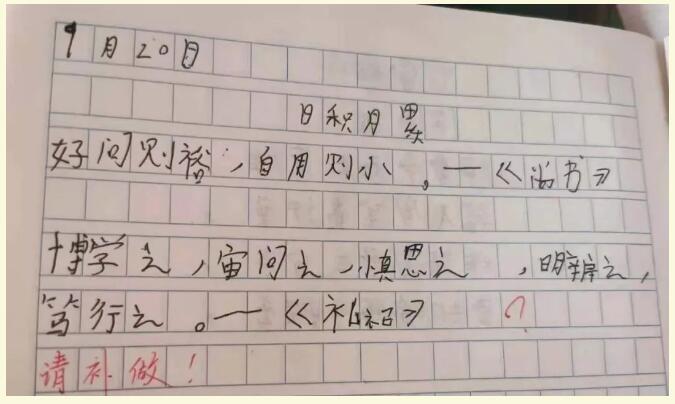 9月20日
日积月累
好问则裕,自用则小。—《尚书》
博学之,审问之,慎思之,明辨之,
笃行之。—《礼》 ?
请补做!